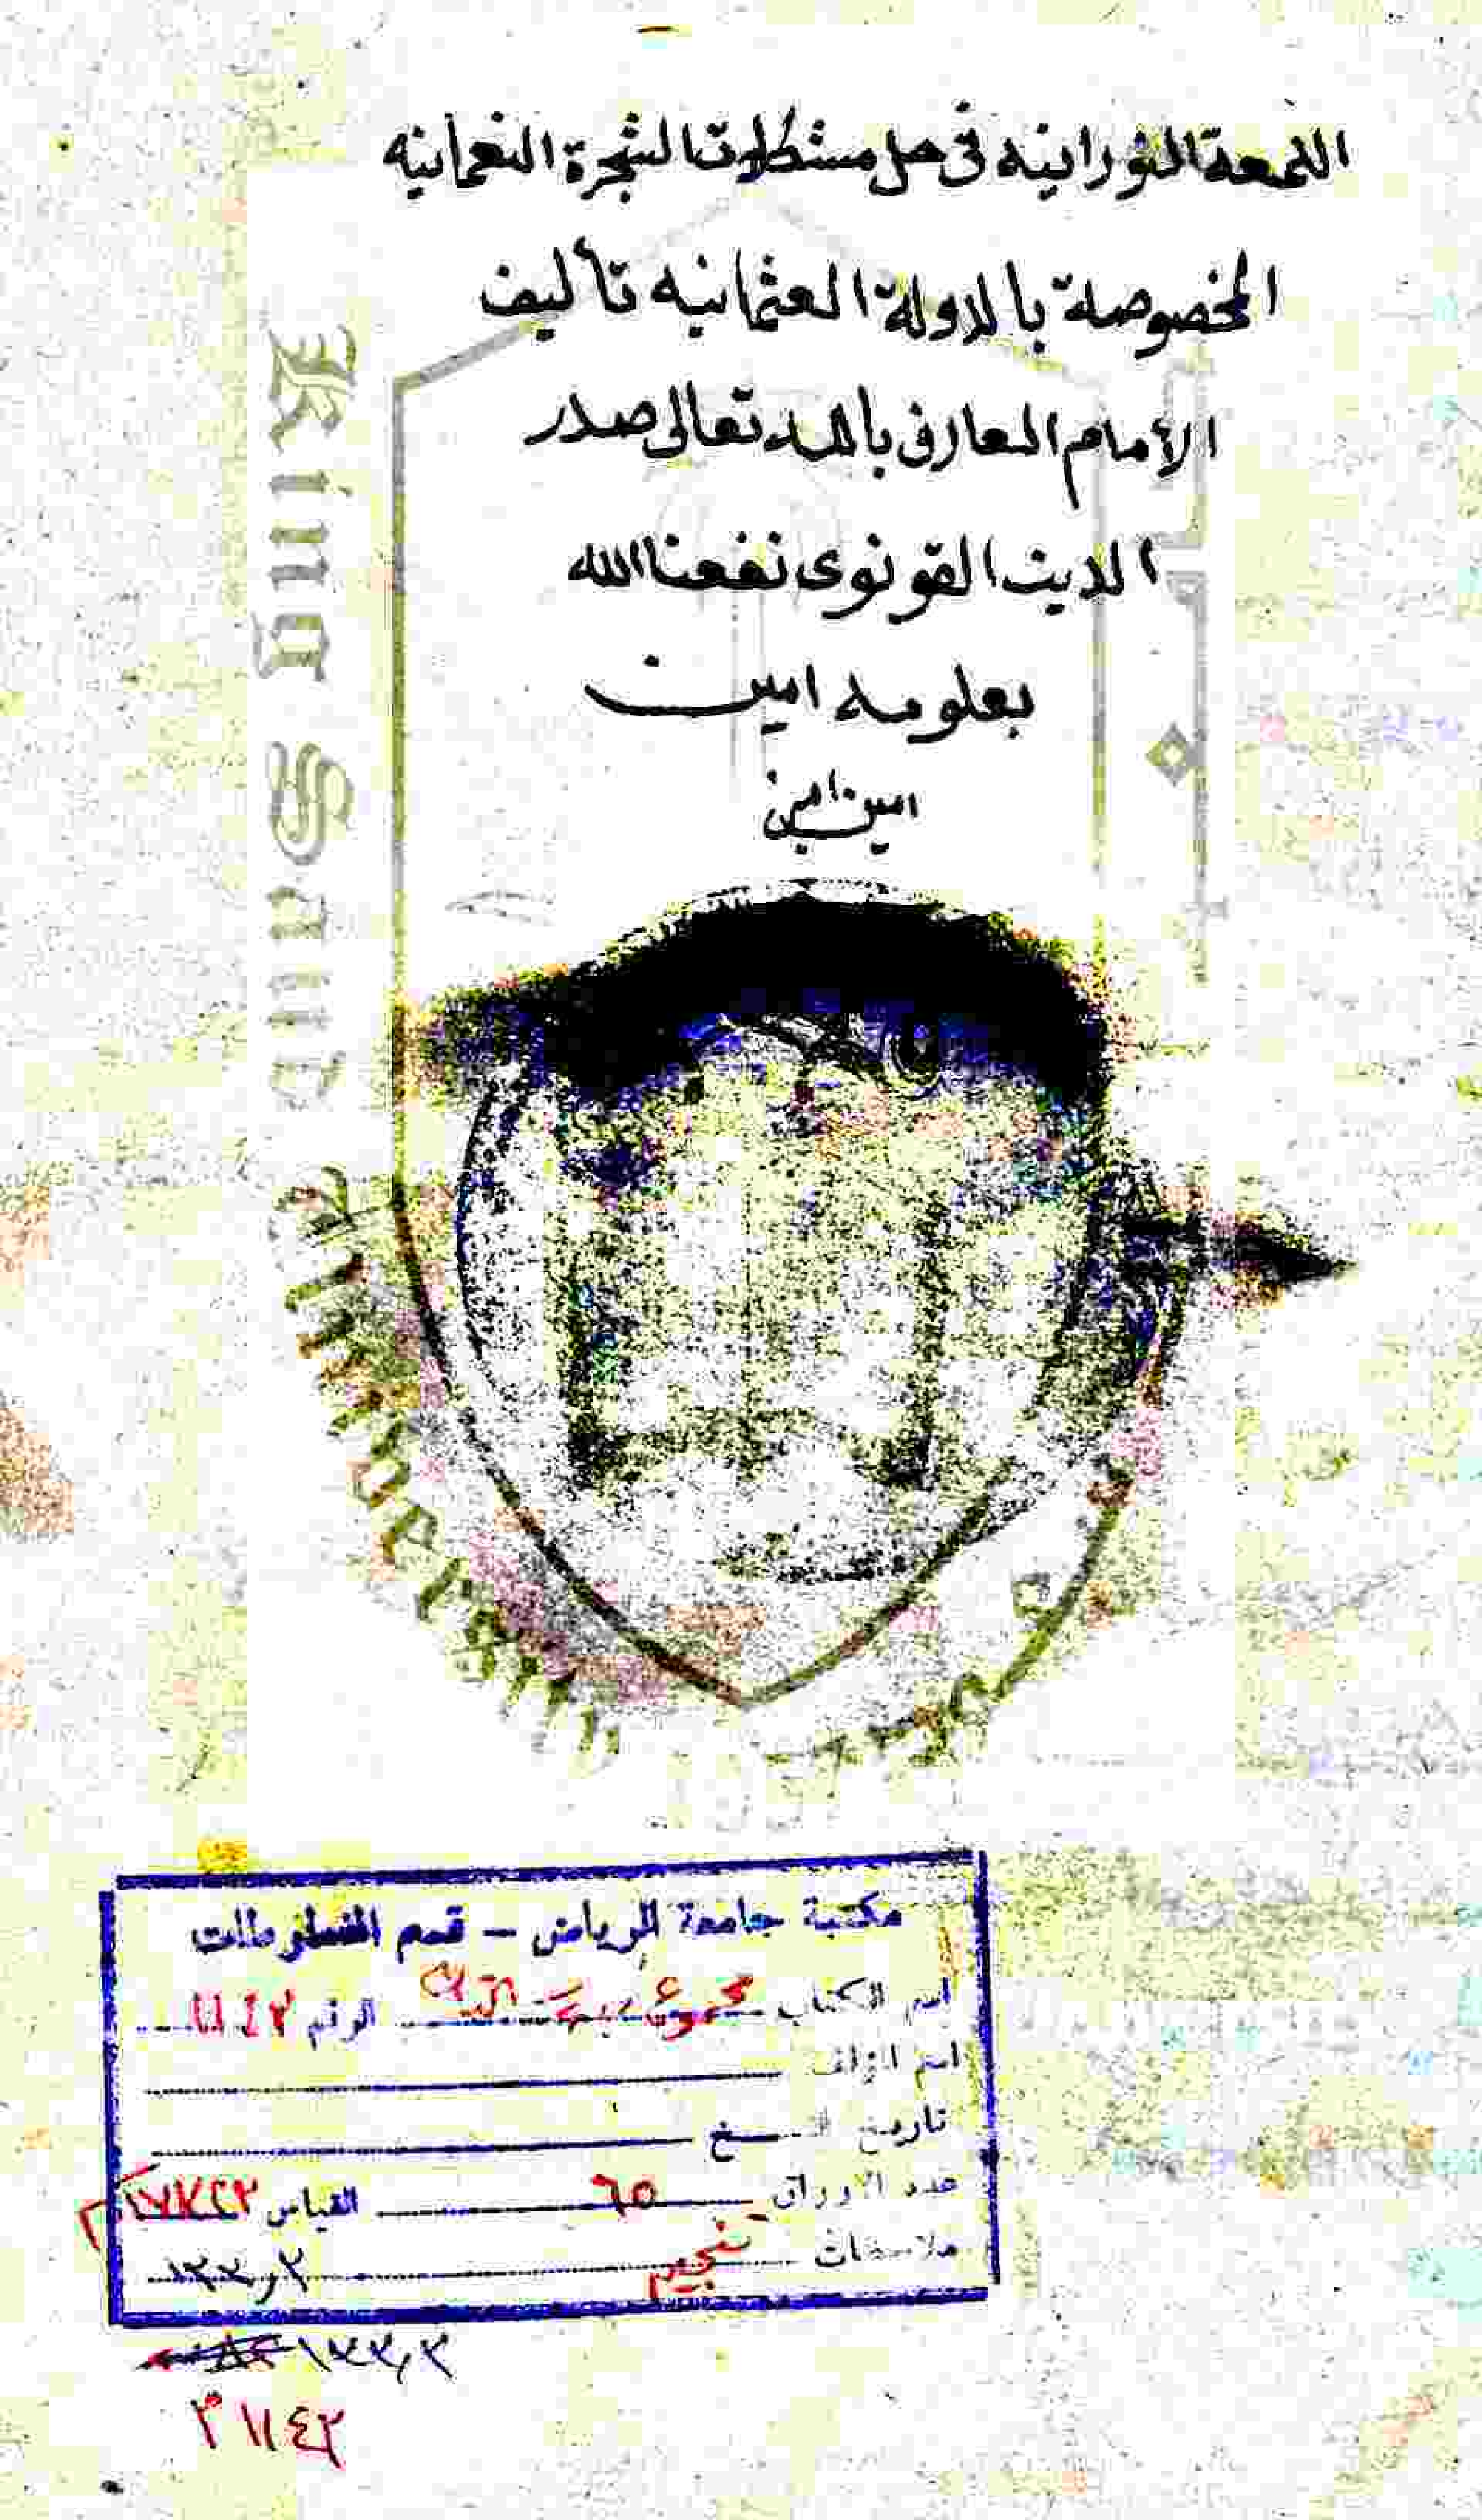 اللمعة النورانيه فى حل مشكلات الشجرة النعمانيه
المخصوصة بالدولة العثمانيه تأليف
الإمام العارف بالله تعالى صدر
الدين القونوى نفعنا الله
بعلومه امين
امين امين
King Saud
مكتبة جامعة الرياض – قسم المخطوطات
اسم الكتاب مجموعة الرقم ١١٤٢
اسم المؤلف
تاريخ النسخ
عدد الاوراق ٦٥ القياس
ملاحظات تنجيم ١٣٣٫٢
١٣٣٫٢
١١٤٢ م